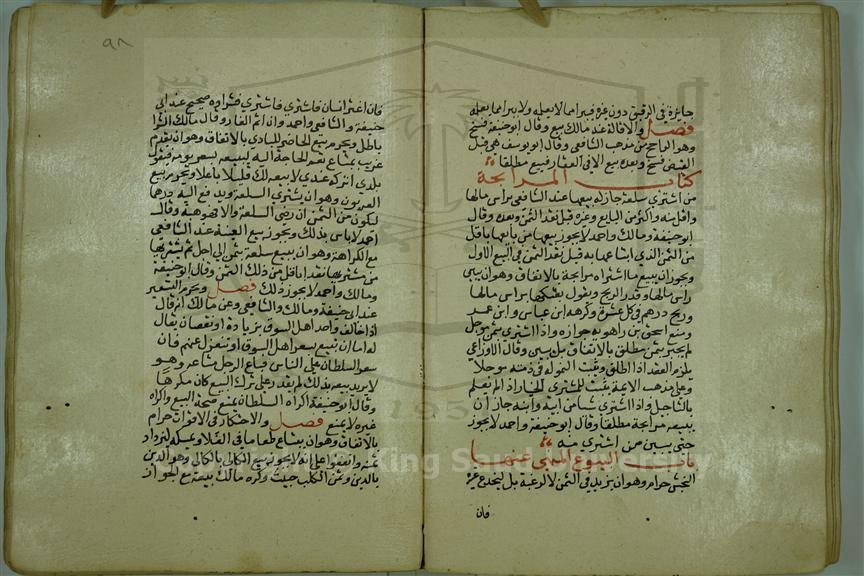 جائزة في الرقيق دون غيره فيبرا مما لا يعلمه ولا يبرا مما يعلمه
فصل والاقالة عند مالك بيع وقال ابو حنيفة فسخ
وهو الراجح من مذهب الشافعي وقال ابو يوسف هي قبل
القبض فسخ وبعده بيع الا في العقار فبيع مطلقا
كتاب المرابحة
من اشترى سلعة جاز له بيعها عند الشافعي براس مالها
واقل منه واكثر من البايع وغيره قبل نقد الثمن وبعده وقال
ابو حنيفة ومالك واحمد لا يجوز بيعها من بايعها باقل
من الثمن الذي ابتاعها به قبل نقد الثمن في البيع الاول
ويجوز ان يبيع ما اشتراه مرابحة بالاتفاق وهو ان يبين
راس مالها وقدر الربح ويقول بعتكها براس مالها
وربح درهم في كل عشرة وكرهه ابن عباس وابن عمر
ومنع اسحق بن راهويه جوازه واذا اشترى بثمن مؤجل
لم يخبر بثمن مطلق بالاتفاق بل يبين وقال الاوزاعي
يلزم العقد اذا اطلق ويثبت الثمن في ذمته مؤجلا
وعلى مذهب الايمة يثبت للمشتري الخيار اذا لم يعلم
بالتاجيل واذا اشترى شيا من ابيه وابنه جاز ان
يبيعه مرابحة مطلقا وقال ابو حنيفة واحمد لا يجوز
حتى يبين من اشترى منه
باب البيوع المنهي عنها
النجش حرام وهو ان يزيد في الثمن لا لرغبة بل ليخدع غيره
فان
٩٨
فان اغتر انسان فاشترى فشراوه صحيح عند ابي
حنيفة والشافعي واحمد وان اثم الغار وقال مالك الشرا
باطل ويحرم بيع الحاضر للبادي بالاتفاق وهو ان يقدم
غريب بمتاع تعم الحاجة اليه ليبيعه بسعر يومه فيقول
بلدي اتركه عندي لابيعه لك قليلا باغلا ويحرم بيع
العربون وهو ان يشتري السلعة ويدفع اليه درهما
ليكون من الثمن ان رضي السلعة والا فهو هبة وقال
احمد لا باس بذلك ويجوز بيع العينة عند الشافعي
مع الكراهة وهو ان يبيع سلعة بثمن الى اجل ثم يشتريها
من مشتريها نقدا باقل من ذلك الثمن وقال ابو حنيفة
ومالك واحمد لا يجوز ذلك فصل ويحرم التسعير
عند ابي حنيفة ومالك والشافعي وعن مالك انه قال
اذا خالف واحد اهل السوق بزيادة او نقصان يقال
له اما ان تبيع بسعر اهل السوق او تنعزل عنهم فان
سعر السلطان على الناس فباع الرجل متاعه وهو
لا يريد بيعه بذلك لم يقدر على ترك البيع كان مكرها
وقال ابو حنيفة اكراه السلطان يمنع صحة البيع واكراه
غيره لا يمنع فصل والاحتكار في الاقوات حرام
بالاتفاق وهو ان يبتاع طعاما في الغلا ويمسكه ليزداد
ثمنه واتفقوا على انه لا يجوز بيع الكالي بالكالي وهو الدين
بالدين وثمن الكلب خبيث وكره مالك بيعه مع الجواز